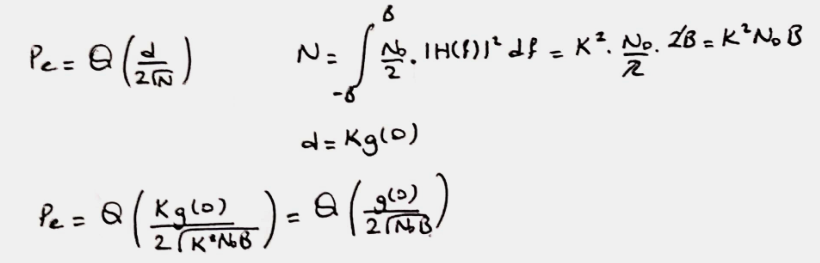 Pe = Q(d/2√N) N = ∫_{-B}^{B} N₀/2 · |H(f)|² df = K² · N₀/2 · 2B = K²N₀B
d = Kg(0)
Pe = Q(Kg(0)/2√K²N₀B) = Q(g(0)/2√N₀B)